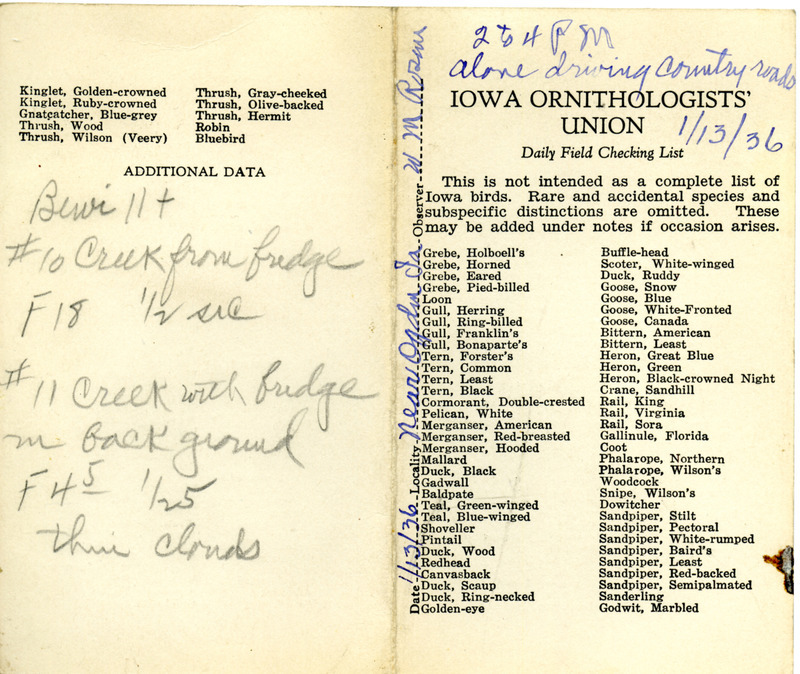 Kinglet, Golden-crowned
Kinglet, Ruby-crowned
Gnatcatcher, Blue-grey
Thrush, Wood
Thrush, Wilson (Veery)
Thrush, Gray-cheeked
Thrush, Olive-backed
Thrush, Hermit
Robin
Bluebird
ADDITIONAL DATA
11+
#10 Creek from bridge
F 18 1/2 sec
#11 Creek with bridge
in back ground
F 4 5 1/25
thin clouds
Date 1/13/36 Locality near Ogden Ia Observer W M Rosene
2 to 4 P M
alone driving country roads
IOWA ORNITHOLOGISTS'
UNION
1/13/36
Daily Field Checking List
This is not intended as a complete list of
Iowa birds. Rare and accidental species and
subspecific distinctions are omitted. These
may be added under notes if occasion arises.
Grebe, Holboell's
Grebe, Horned
Grebe, Eared
Grebe, Pied-billed
Loon
Gull, Herring
Gull, Ring-billed
Gull, Franklin's
Gull, Bonaparte's
Tern, Forster's
Tern, Common
Tern, Least
Tern, Black
Cormorant, Double-crested
Pelican, White
Merganser, American
Merganser, Red-breasted
Merganser, Hooded
Mallard
Duck, Black
Gadwall
Baldpate
Teal, Green-winged
Teal, Blue-winged
Shoveller
Pintail
Duck, Wood
Redhead
Canvasback
Duck, Scaup
Duck, Ring-necked
Golden-eye
Buffle-head
Scoter, White-winged
Duck, Ruddy
Goose, Snow
Goose, Blue
Goose, White-Fronted
Goose, Canada
Bittern, American
Bittern, Least
Heron, Great Blue
Heron, Green
Heron, Black-crowned Night
Crane, Sandhill
Rail, King
Rail, Virginia
Rail, Sora
Gallinule, Florida
Coot
Phalarope, Northern
Phalarope, Wilson's
Woodcock
Snipe, Wilson's
Dowitcher
Sandpiper, Stilt
Sandpiper, Pectoral
Sandpiper, White-rumped
Sandpiper, Baird's
Sandpiper, Least
Sandpiper, Red-backed
Sandpiper, Semipalmated
Sanderling
Godwit, Marbled